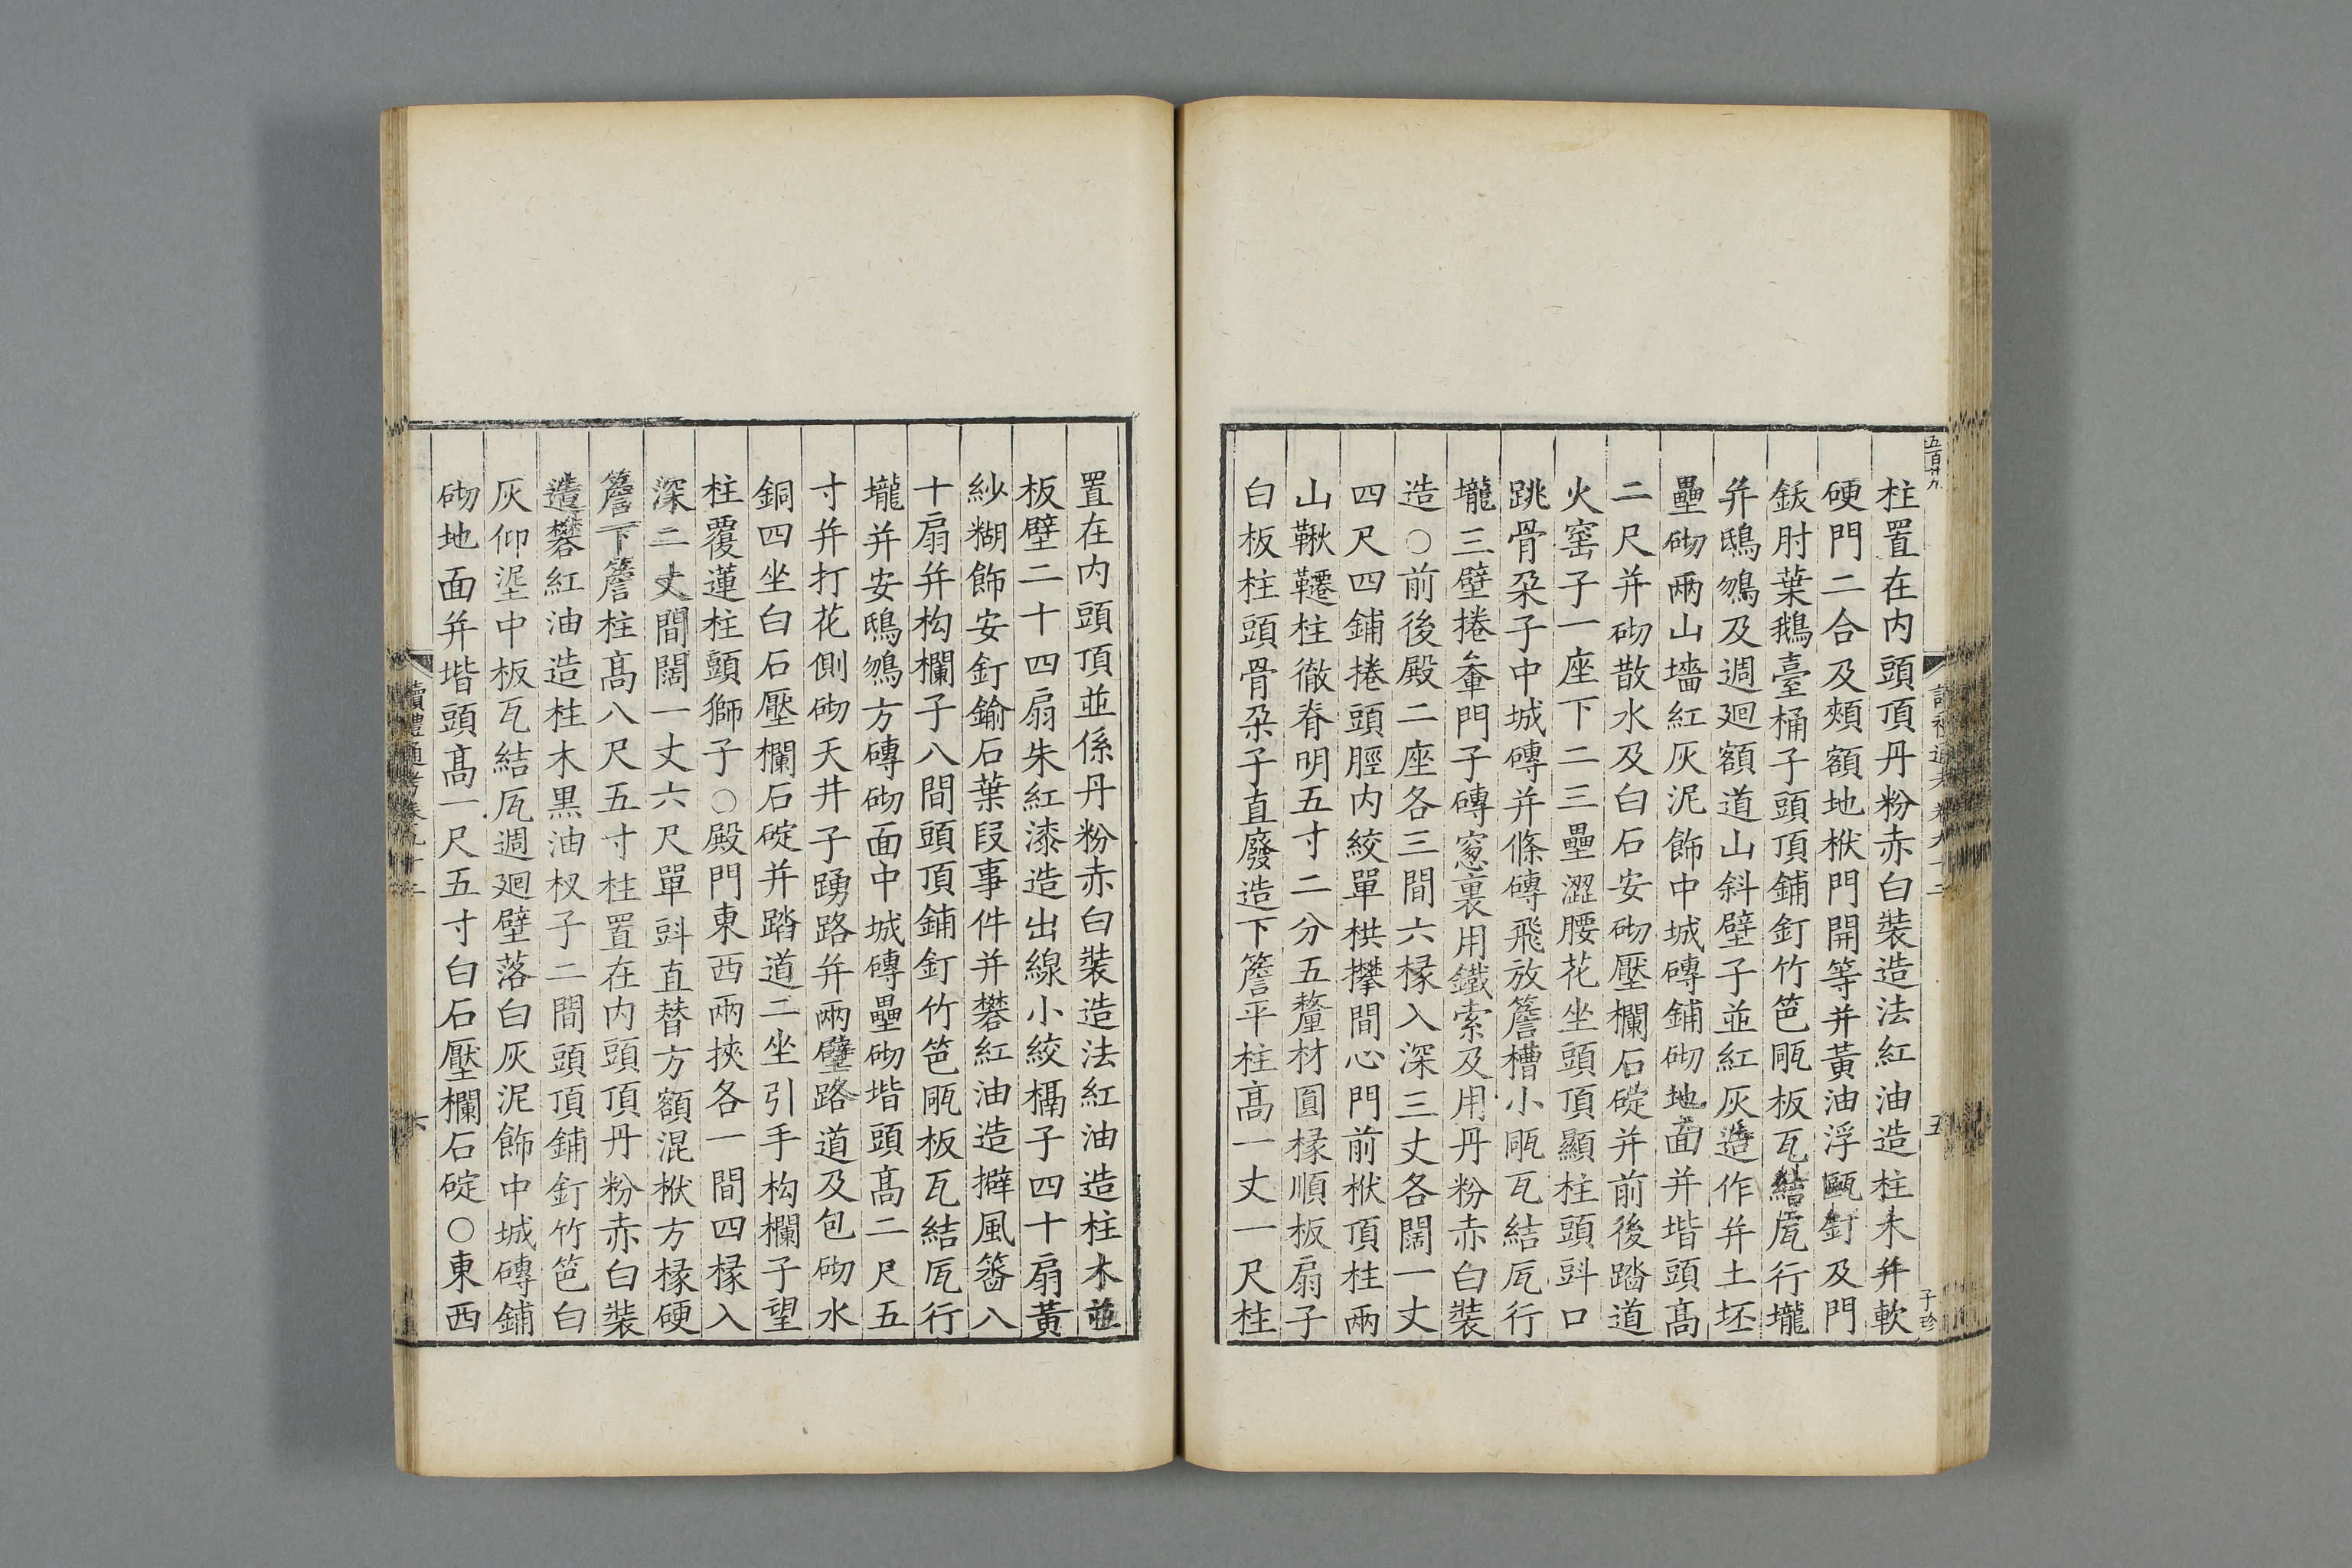 五百廿九
讀禮通考卷九十二
五
子珍
柱置在内頭頂丹粉赤白裝造法紅油造柱木并軟
硬門二合及頰額地栿門開等并黃油浮甌釘及門
鈸肘葉鵝臺桶子頭頂鋪釘竹笆㼧板瓦結㼧行壠
并鴟鴢及週廻額道山斜壁子並紅灰造作并土坯
壘砌兩山墻紅灰泥飾中城磚鋪砌地面并堦頭高
二尺并砌散水及白石安砌壓欄石碇并前後踏道
火窰子一座下二三壘澀腰花坐頭頂顯柱頭㪷口
跳骨朶子中城磚并條磚飛放簷槽小㼧瓦結㼧行
壠三壁捲輂門子磚窻裏用鐵索及用丹粉赤白裝
造○前後殿二座各三間六椽入深三丈各闊一丈
四尺四鋪捲頭脛内絞單栱攀間心門前栿頂柱兩
山鞦韆柱徹脊明五寸二分五釐材圓椽順板扇子
白板柱頭骨朶子直廢造下簷平柱高一丈一尺柱
置在内頭頂並係丹粉赤白裝造法紅油造柱木並
板壁二十四扇朱紅漆造出線小絞槅子四十扇黃
紗糊飾安釘鍮石葉段事件并礬紅油造擗風簭八
十扇并构欄子八間頭頂鋪釘竹笆㼧板瓦結㼧行
壠并安鴟鴢方磚砌面中城磚壘砌堦頭高二尺五
寸并打花側砌天井子踴路并兩璧路道及包砌水
銅四坐白石壓欄石碇并踏道二坐引手构欄子望
柱覆蓮柱頭獅子○殿門東西兩挾各一間四椽入
深二丈間闊一丈六尺單㪷直替方額混栿方椽硬
簷下簷柱高八尺五寸柱置在内頭頂丹粉赤白裝
造礬紅油造柱木黒油杈子二間頭頂鋪釘竹笆白
灰仰泥中板瓦結㼧週廻壁落白灰泥飾中城磚鋪
砌地面并堦頭高一尺五寸白石壓欄石碇○東西
讀禮通考卷九十二
六